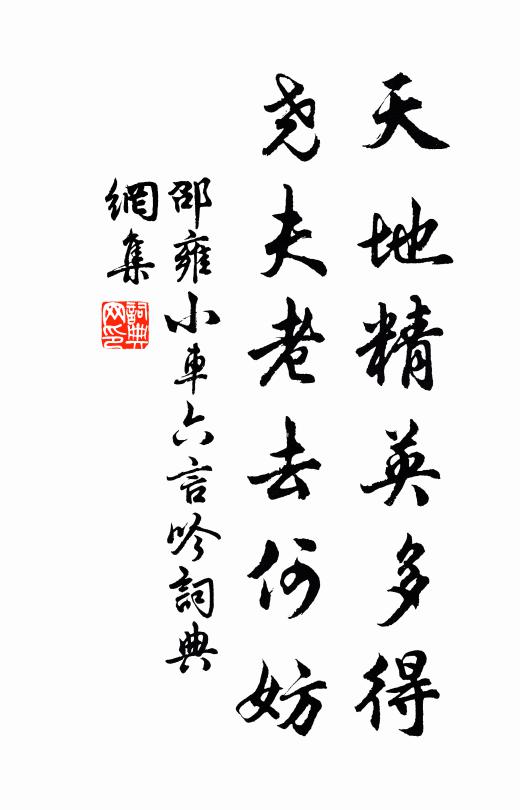 天地精英多得
尧夫老去何妨
邵雍小車六言吟詞典
網集
詞典网印